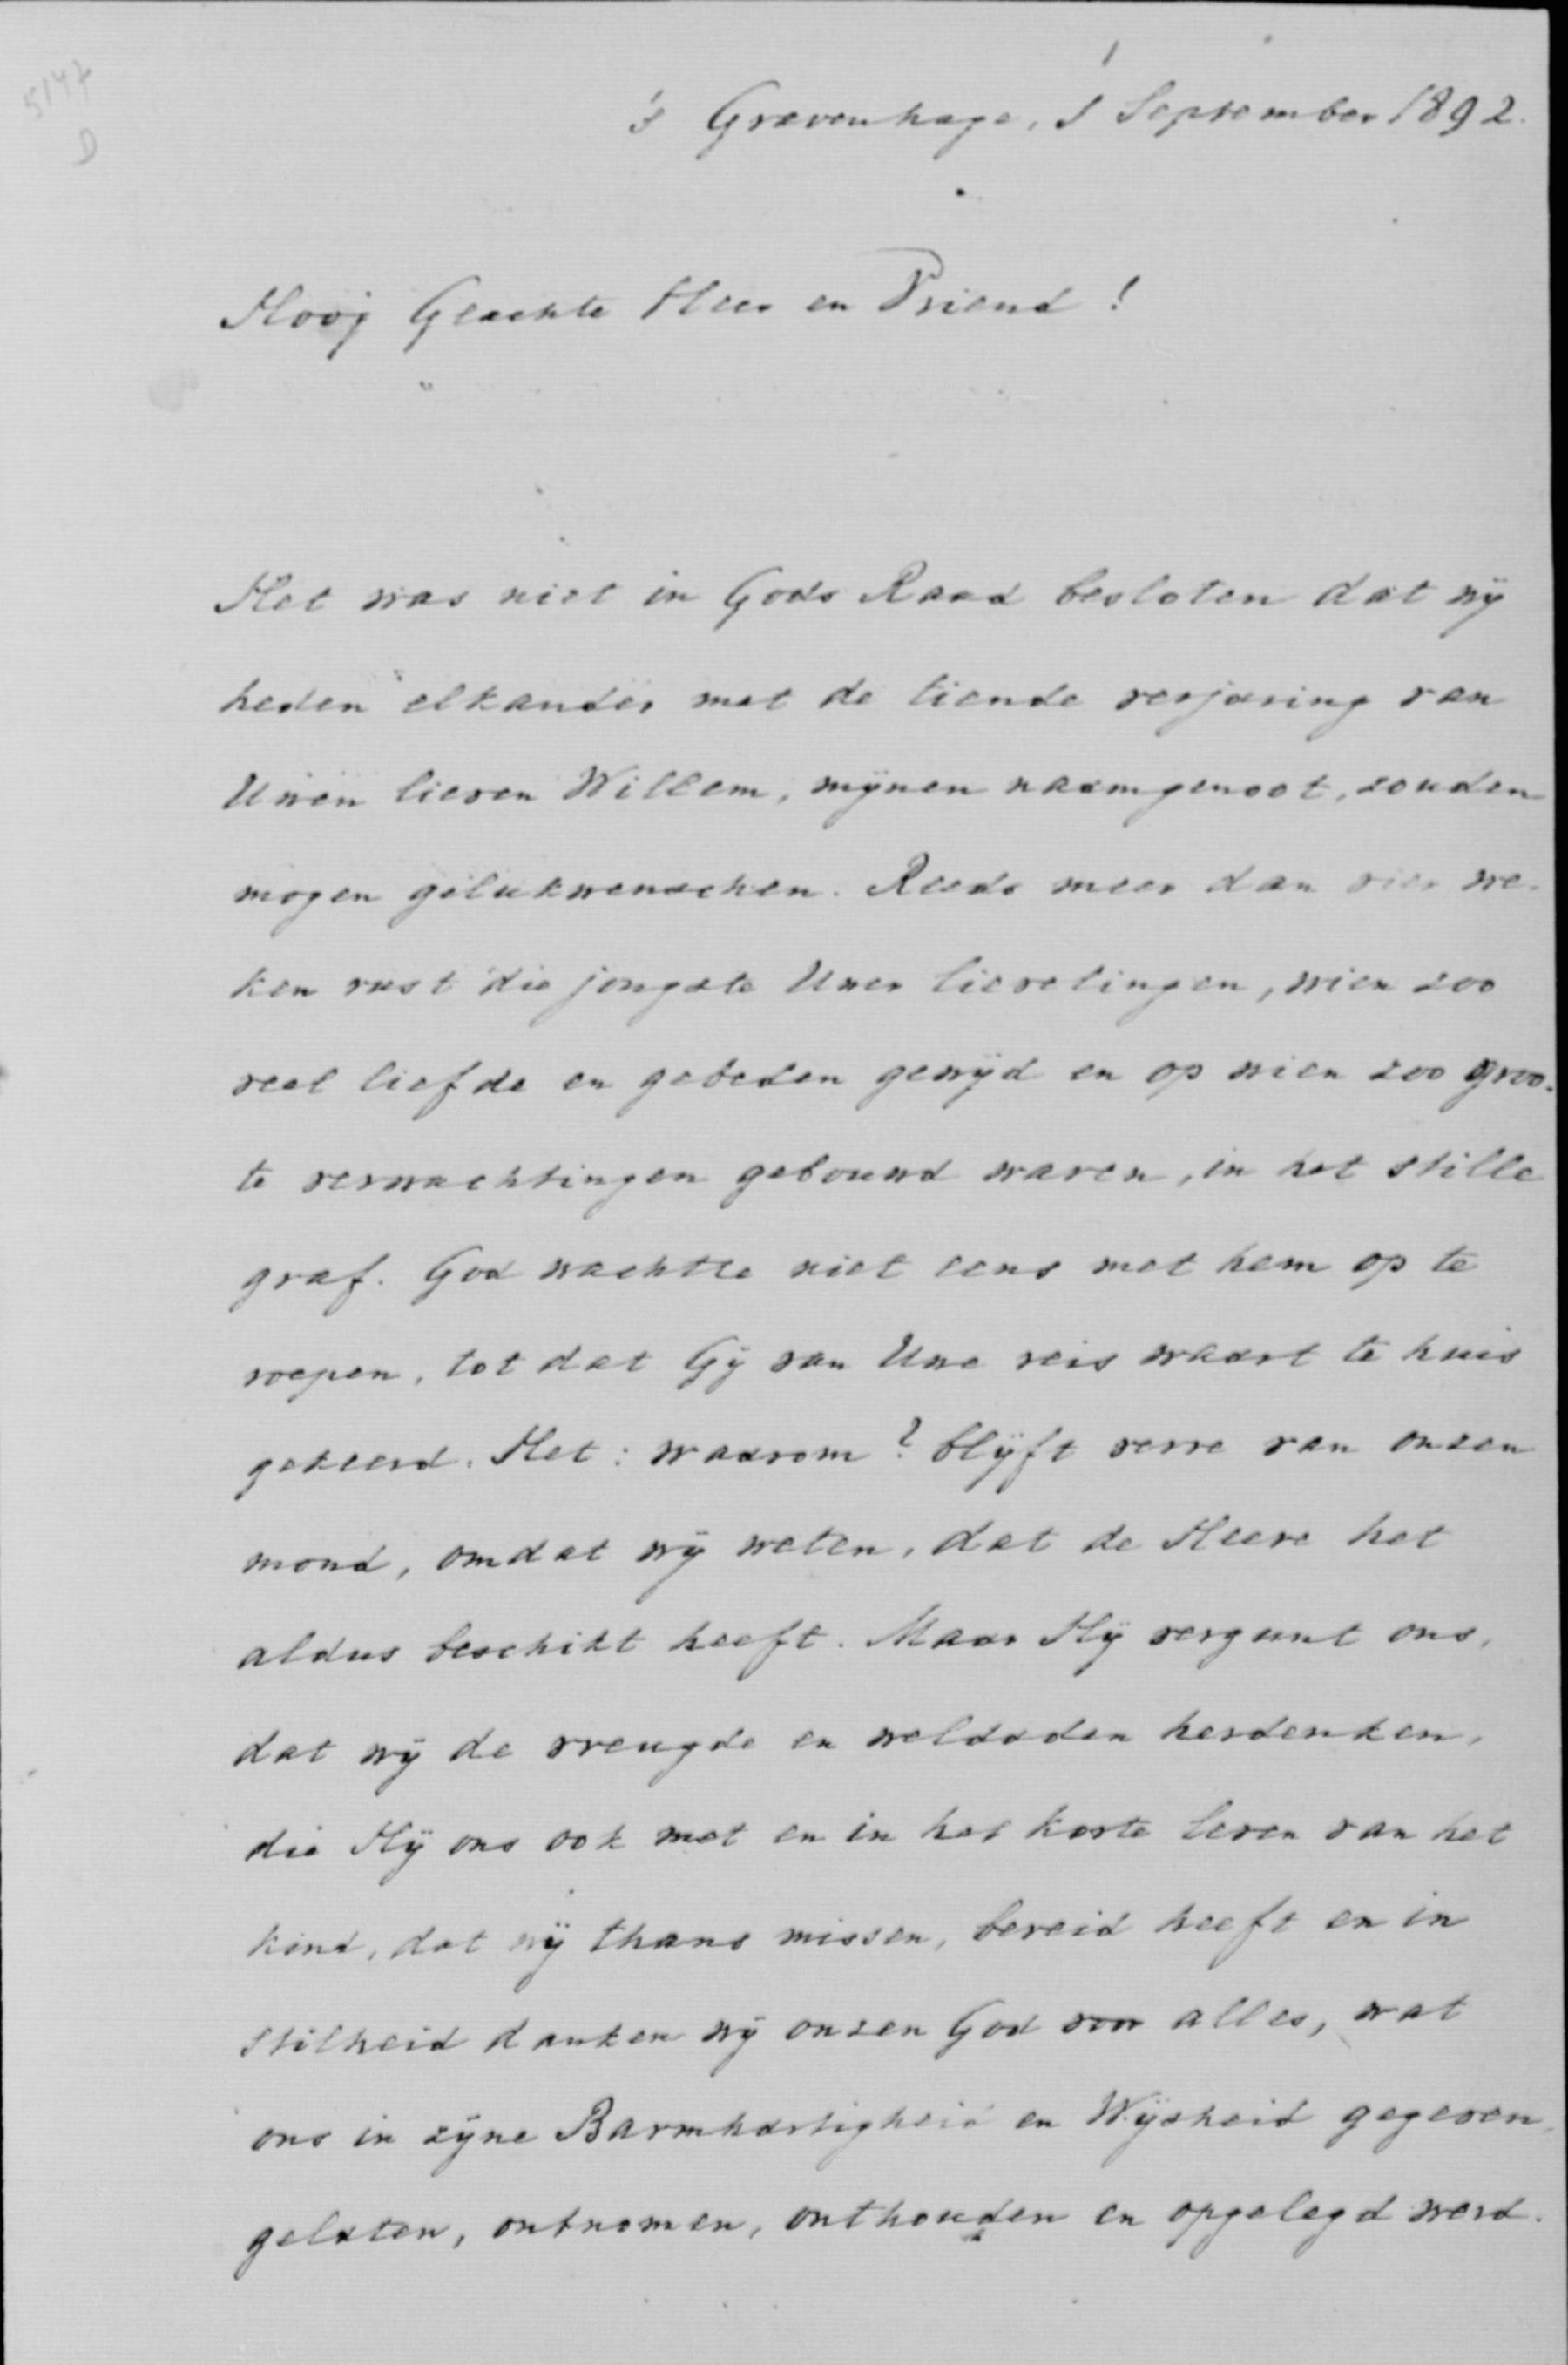 5147
D
's Gravenhage, 1 September 1892.
Hoog Geachte Heer en Vriend!
Het was niet in Gods Raad besloten dat wij
heden elkander met de tiende verjaring van
Uwen lieven Willem, mijnen naamgenoot, zouden
mogen gelukwenschen. Reeds meer dan vier we-
ken rust die jongste Uwer lievelingen, wien zoo
veel liefde en gebeden gewijd en op wien zoo groo-
te verwachtingen gebouwd waren, in het stille
graf. God wachtte niet eens met hem op te
roepen, tot dat Gij van Uwe reis waart te huis
gekeerd. Het: waarom? blijft verre van onzen
mond, omdat wij weten, dat de Heere het
aldus beschikt heeft. Maar Hij vergunt ons,
dat wij de vreugde en weldaden herdenken,
die Hij ons ook met en in het korte leven van het
kind, dat wij thans missen, bereid heeft en in
stilheid danken wij onzen God voor alles, wat
ons in zijne Barmhartigheid en Wijsheid gegeven,
gelaten, ontnomen, onthouden en opgelegd werd.